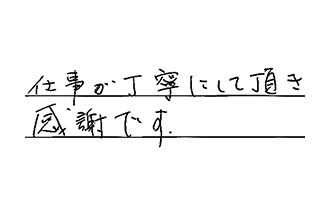 仕事が丁寧にして頂き
感謝です.